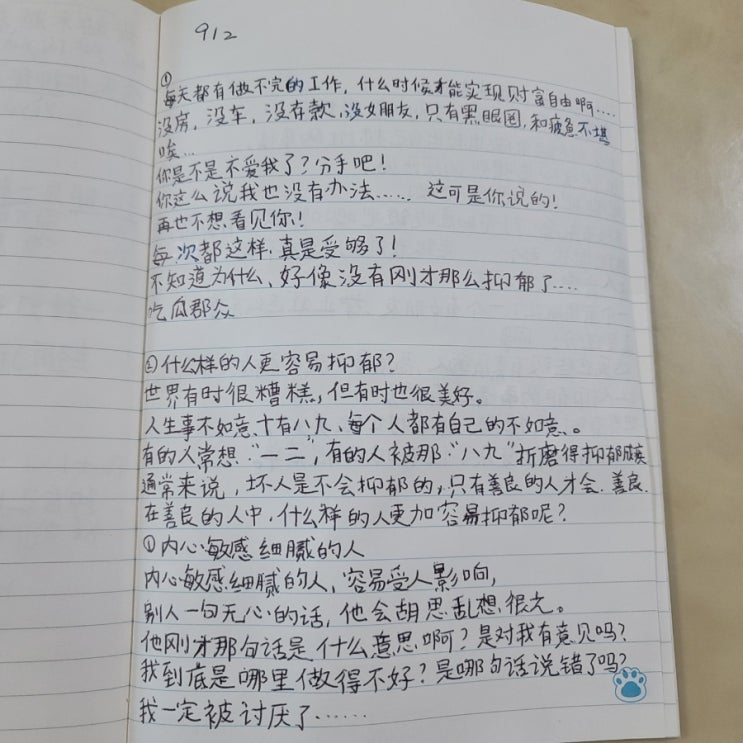 912
①
每天都有做不完的工作，什么时候才能实现财富自由啊....
没房，没车，没存款，没女朋友，只有黑眼圈，和疲惫不堪
唉...
你是不是不爱我了？分手吧！
你这么说我也没有办法...... 这可是你说的！
再也不想看见你！
每次都这样，真是受够了！
不知道为什么、好像没有刚才那么抑郁了....
吃瓜群众
②什么样的人更容易抑郁？
世界有时很糟糕，但有时也很美好。
人生事不如意、十有八九、每个人都有自己的不如意、。
有的人常想“一二”，有的人被那“八九”折磨得抑郁成疾
通常来说，坏人是不会抑郁的，只有善良的人才会.善良.
在善良的人中，什么样的人更加容易抑郁呢？
①内心敏感细腻的人
内心敏感细腻的人，容易受人影响，
别人一句无心的话，他会胡思乱想很久。
他刚才那句话是什么意思啊？是对我有意见吗？
我到底是哪里做得不好？是哪句话说错了吗？
我一定被讨厌了......